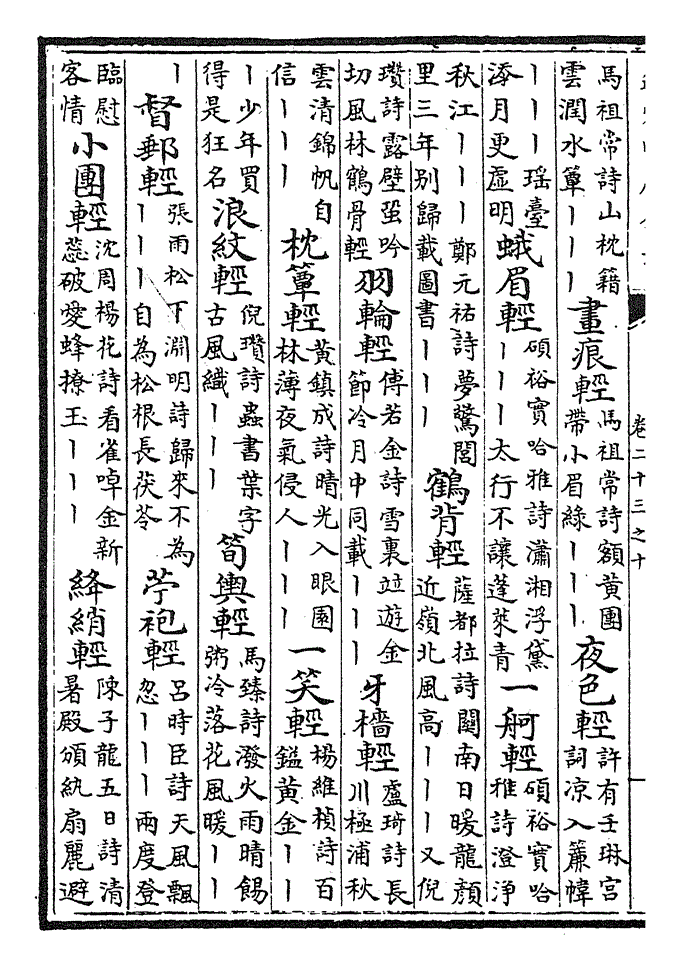 馬祖常詩山枕籍
雲潤水簟｜｜｜
畫痕輕
馬祖常詩額黃團
帶小眉綠｜｜｜
夜色輕
許有壬琳宮
詞凉入簾幃
｜｜｜瑶臺
添月更虛明
蛾眉輕
碩裕實哈雅詩瀟湘浮黛
｜｜｜太行不讓蓬萊青
一舸輕
碩裕實哈
雅詩澄淨
秋江｜｜｜鄭元祐詩夢驚閶
里三年別歸載圖書｜｜｜
鶴背輕
薩都拉詩闗南日暖龍顏
近嶺北風高｜｜｜又倪
瓚詩露壁蛩吟
切風林鶴骨輕
羽輪輕
傅若金詩雪裏竝遊金
節冷月中同載｜｜｜
牙檣輕
盧琦詩長
川極浦秋
雲清錦帆自
信｜｜｜
枕簟輕
黃鎮成詩晴光入眼園
林薄夜氣侵人｜｜｜
一笑輕
楊維楨詩百
鎰黃金｜｜
｜少年買
得是狂名
浪紋輕
倪瓚詩蟲書葉字
古風織｜｜｜
筍輿輕
馬臻詩潑火雨晴餳
粥冷落花風暖｜｜
｜
督郵輕
張雨松下淵明詩歸來不為
｜｜｜自為松根長茯苓
苧袍輕
呂時臣詩天風飄
忽｜｜｜兩度登
臨慰
客情
小團輕
沈周楊花詩看雀啅金新
蕊破愛蜂撩玉｜｜｜
絳綃輕
陳子龍五日詩清
暑殿頒紈扇麗避
卷二十三之十